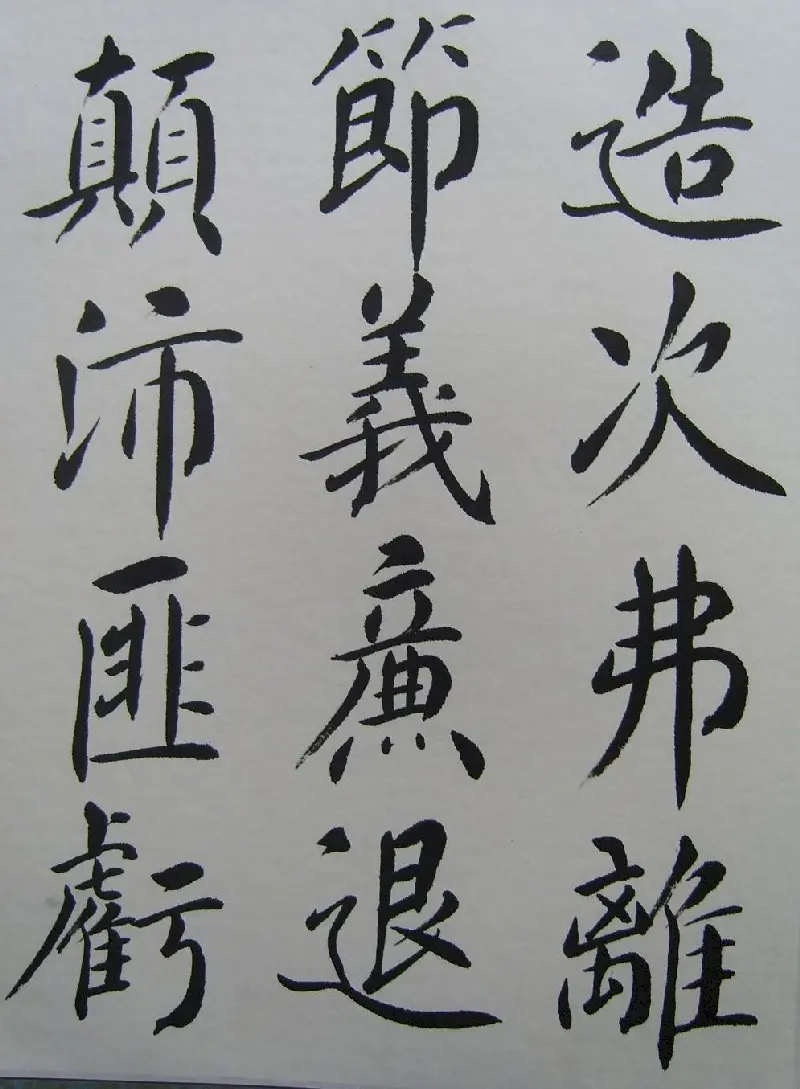 造次弗離
節義廉退
顛沛匪虧